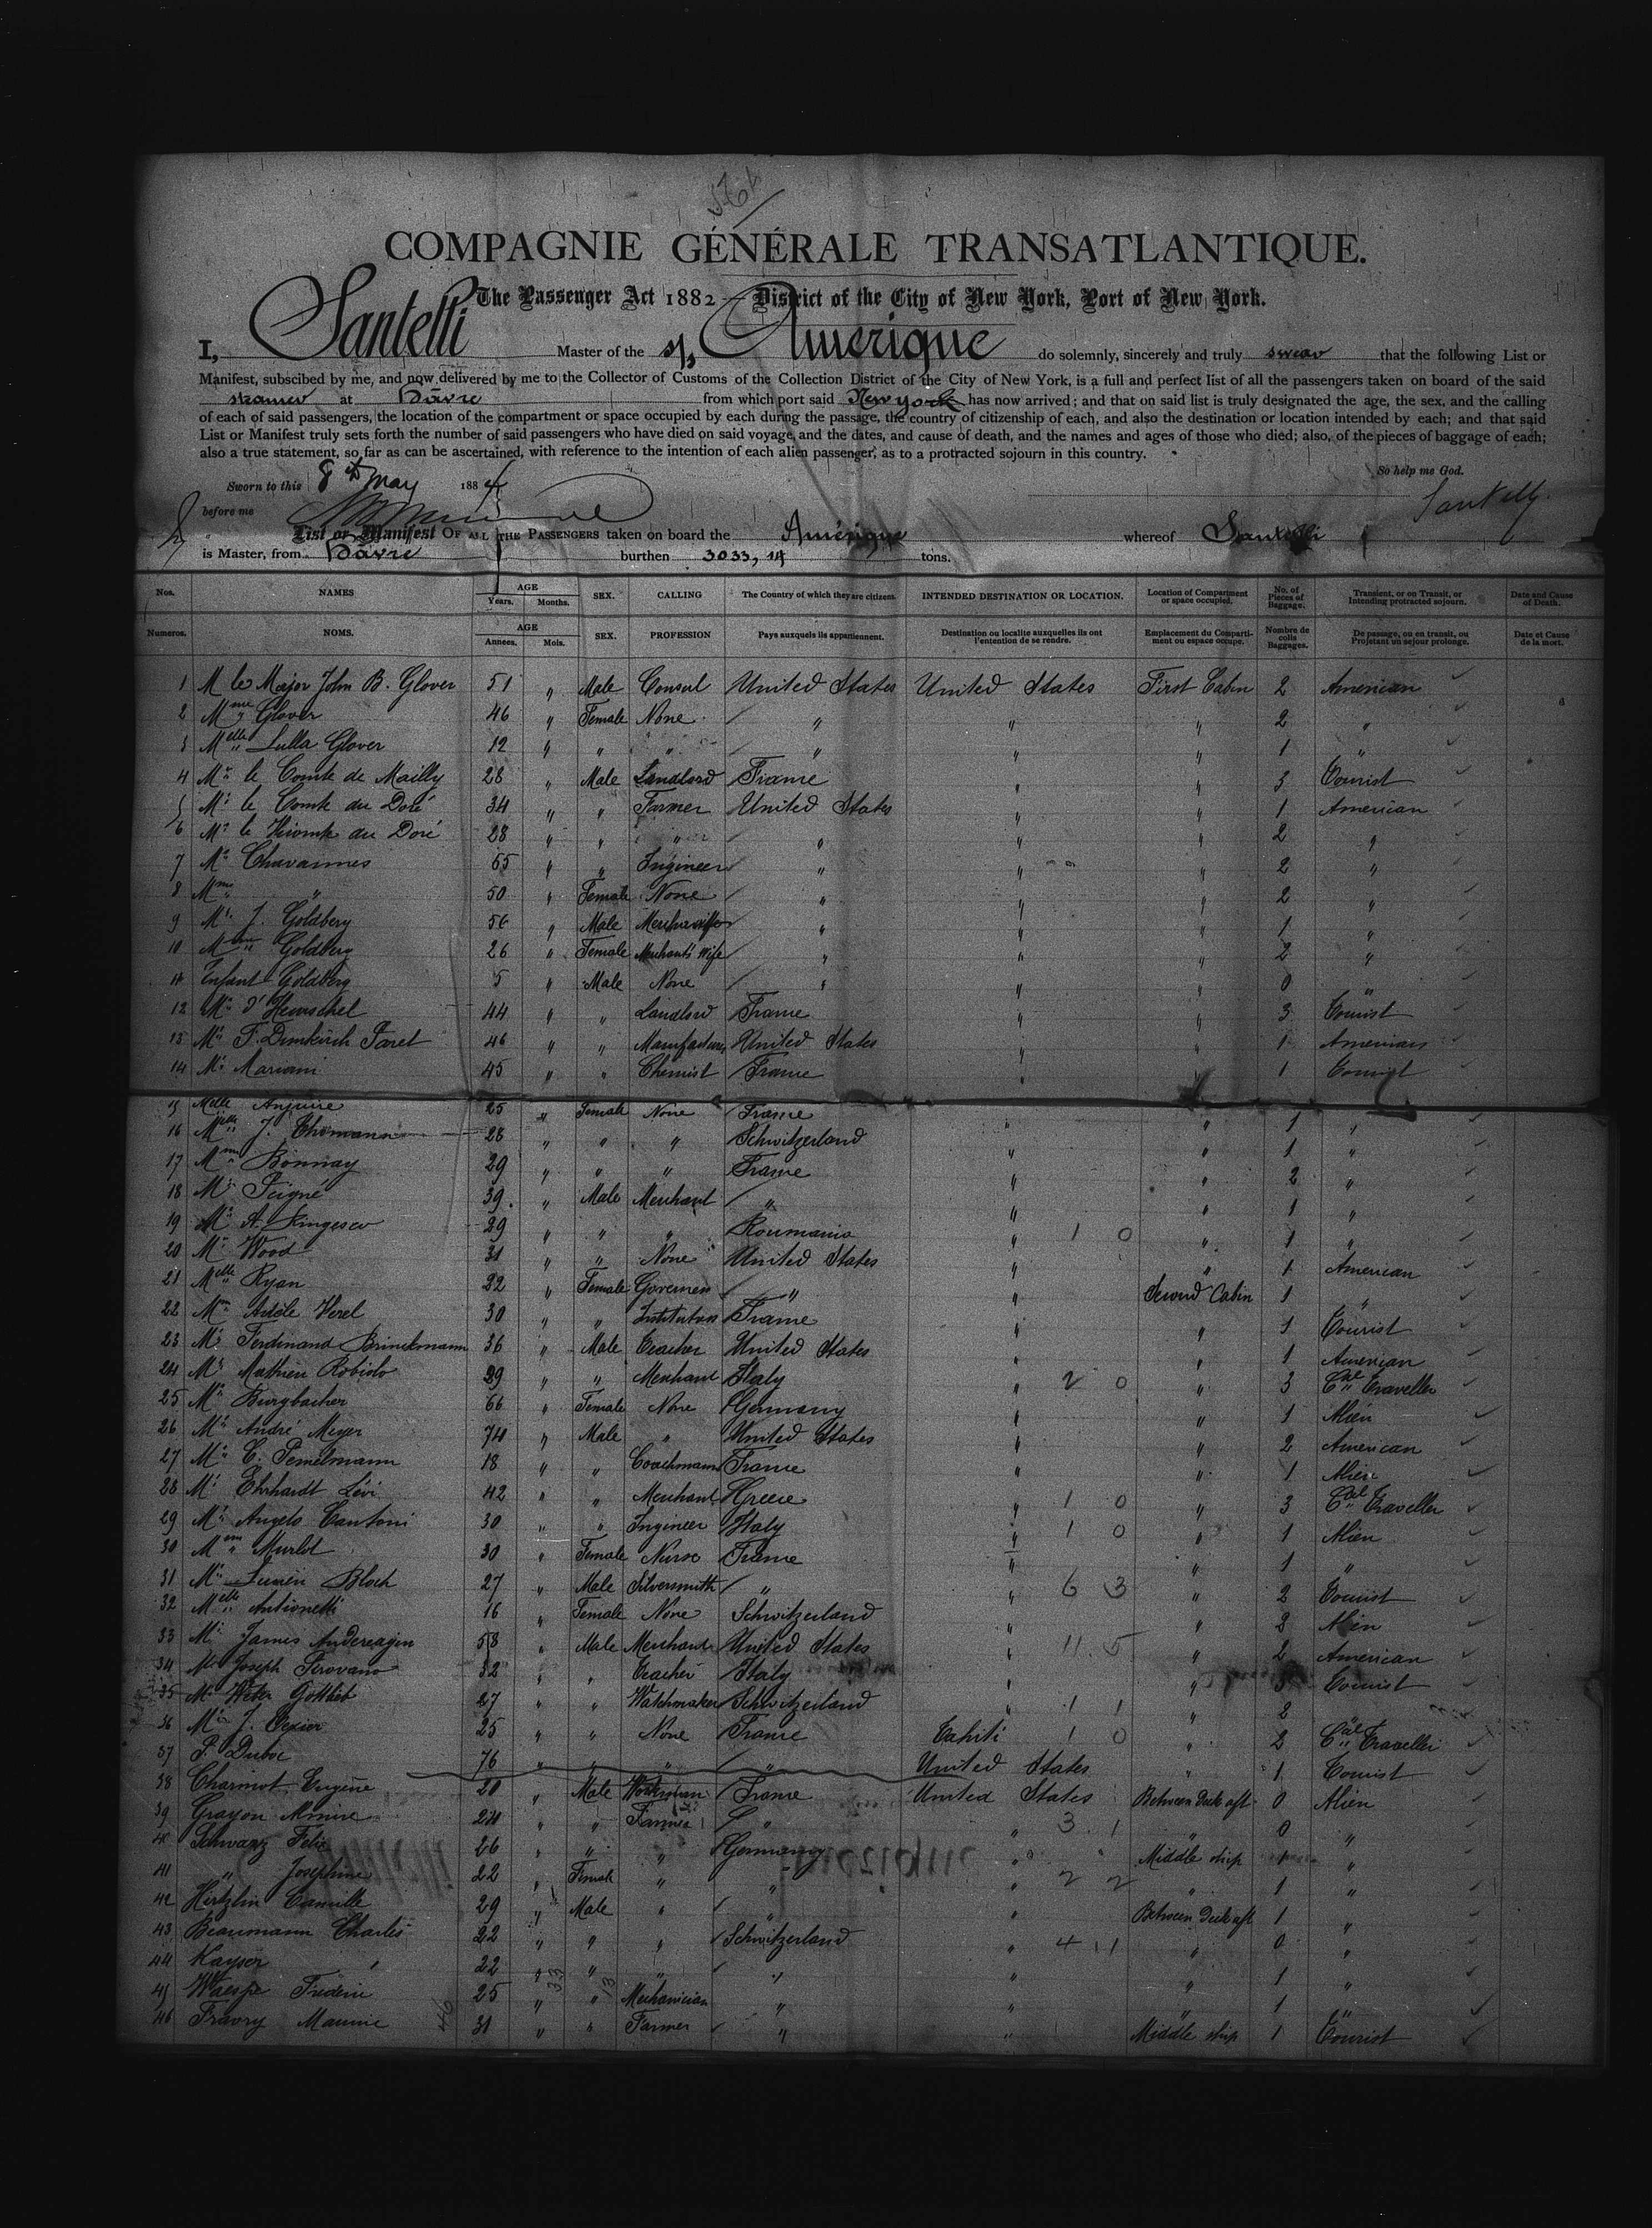 COMPAGNIE GÉNÉRALE TRANSATLANTIQUE.
The Passenger Act 1882 — District of the City of New York, Port of New York.
I, Santelli Master of the s/s Amerique do solemnly, sincerely and truly swear that the following List or
Manifest, subscibed by me, and now delivered by me to the Collector of Customs of the Collection District of the City of New York, is a full and perfect list of all the passengers taken on board of the said
steamer at Havre from which port said New york has now arrived; and that on said list is truly designated the age, the sex, and the calling
of each of said passengers, the location of the compartment or space occupied by each during the passage, the country of citizenship of each, and also the destination or location intended by each; and that said
List or Manifest truly sets forth the number of said passengers who have died on said voyage, and the dates, and cause of death, and the names and ages of those who died; also, of the pieces of baggage of each;
also a true statement, so far as can be ascertained, with reference to the intention of each alien passenger, as to a protracted sojourn in this country.
So help me God.
Sworn to this 8th May 1884
Santelli
before me
List or Manifest OF ALL THE PASSENGERS taken on board the Amérique whereof Santelli
is Master, from Havre burthen 3033,14 tons.
Nos. NAMES AGE Years. Months. SEX. CALLING The Country of which they are citizens. INTENDED DESTINATION OR LOCATION. Location of Compartment or space occupied. No. of Pieces of Baggage. Transient, or on Transit, or Intending protracted sojourn. Date and Cause of Death.
Numeros. NOMS. AGE Annees. Mois. SEX. PROFESSION Pays auxquels ils appartiennent. Destination ou localite auxquelles ils ont l'entention de se rendre. Emplacement du Comparti-ment ou espace occupe. Nombre de colis Baggages. De passage, ou en transit, ou Projetant un sejour prolonge. Date et Cause de la mort.
1 M le Major John B. Glover 51 " Male Consul United States United States First Cabin 2 American
2 Mme Glover 46 " Female None " " " 2 "
3 Melle Lulla Glover 12 " " " " " " 1 "
4 Mr le Comte de Mailly 28 " Male Landlord France " " 3 Tourist
5 Mr le Comte du Doré 34 " " Farmer United States " " 1 American
6 Mr le Vicomte du Doré 28 " " " " " " 2 "
7 Mr Chavannes 55 " " Ingineer " " " 2 "
8 Mme " 50 " Female None " " " 2 "
9 Mr J. Goldberg 56 " Male " " " 1 "
10 Mme Goldberg 26 " Female Merchant's Wife " " " 2 "
11 Enfant Goldberg 5 " Male None " " " 0 "
12 Mr d'Heurschel 44 " " Landlord France " " 3 Tourist
13 Mr F. Dunkirch Faret 46 " " Manufacturer United States " " 1 American
14 Mr Mariani 45 " " Chemist France " " 1 Tourist
15 Melle 25 " Female None France " " 1 "
16 Melle J. Thomann 28 " " " Schwitzerland " " 1 "
17 Mme Bonnay 29 " " " France " " 2 "
18 Mr Peigné 39 " Male Merchant " " " 1 "
19 Mr A. 29 " " " Roumania " 1 0 " 1 "
20 Mr Wood 31 " " None United States " " 1 American
21 Melle Ryan 22 " Female Governess " " Second Cabin 1 "
22 Mme Adèle Herel 30 " " France " " 1 Tourist
23 Mr Ferdinand Brinckmann 36 " Male Teacher United States " " 1 American
24 Mr Mathieu Robiolo 29 " " Merchant Italy " 2 0 " 3 Cal Traveller
25 Mme Burgbacher 66 " Female None Germany " " 1 Alien
26 Mr André Meyer 74 " Male " United States " " 2 American
27 Mr C. Pemelmann 18 " " Coachmann France " " 1 Alien
28 Mr Ehrhardt Lévi 42 " " Merchant Greece " 1 0 " 3 Cal Traveller
29 Mr Angelo Cantoni 30 " " Ingineer Italy " 1 0 " 1 Alien
30 Mme Murlot 30 " Female Nurse France " " 1 "
31 Mr Lucien Bloch 27 " Male Silversmith " " 6 3 " 2 Tourist
32 Melle Antionetti 16 " Female None Schwitzerland " " 2 Alien
33 Mr James Andereagen 58 " Male Merchant United States " 11 5 " 2 American
34 Mr Joseph Pirovano 32 " " Teacher Italy " " 3 Tourist
35 Mr Weter Gottlieb 27 " " Watchmaker Schwitzerland " 1 1 " 2
36 Mr J. Texier 25 " " None France Tahiti 1 0 " 2 Cal Traveller
37 P. Duboc 76 " " " " United States " 1 Tourist
38 Charmot Eugène 20 " Male Workman France United States Between Deck aft 0 Alien
39 Grayon 24 " " Farmer " " 3 1 " 0 "
40 Schwarz Félix 26 " " " Germany " Middle ship 1 "
41 " Josephine 22 " Female " " " 2 2 " 1 "
42 Hertzlin Camille 29 " Male " " " Between Deck aft 1 "
43 Beaumann Charles 22 " " " Schwitzerland " 4 1 " 0 "
44 Kayser 22 " " " " " " 1 "
45 Waespe Frédéric 25 " " Mechanician " " " 1 "
46 Fravry Maurice 31 " " Farmer " " Middle ship 1 Tourist